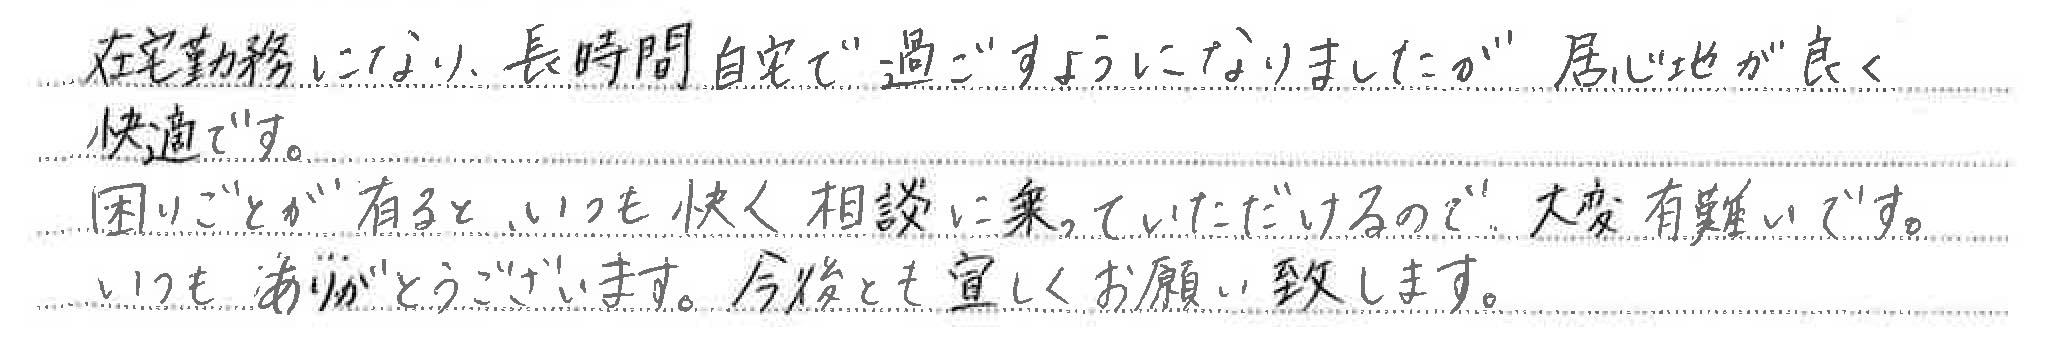 在宅勤務になり、長時間自宅で過ごすようになりましたが居心地が良く
快適です。
困りごとが有ると、いつも快く相談に乗っていただけるので、大変有難いです。
いつもありがとうございます。今後とも宜しくお願い致します。